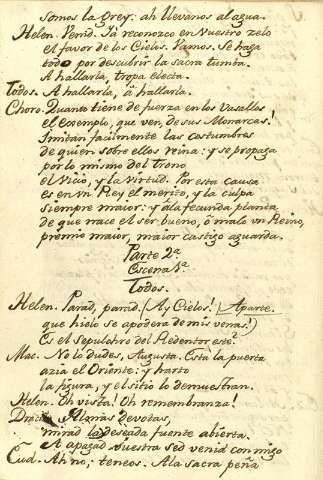 somos la grey: ah llevanos al agua.
Helen. Venid. Ya reconozco en Vuestro zelo
el favor de los Cielos. Vamos. Se haga
todo por descubrir la sacra tumba.
A hallarla, tropa electa.
Todos. A hallarla, â hallarla.
Choro. Quanto tiene de fuerza en los Vasallos
el Exemplo, que ven, de sus Monarcas!
Imitan facilmente las costumbres
de quien sobre ellos reina: y se propaga
por lo mismo del Trono
el Vicio, y la Virtud. Por esta causa
es en un Rey el merito, y la culpa
siempre maior: y â la fecunda planta
de que nace el ser bueno, ô malo un Reino,
premio maior, maior castigo aguarda.
Parte 2ª
Escena 1ª
Todos.
Helen. Parad, parad. (Ay Cielos! Aparte.
que hielo se apodera de mis venas!)
Es el Sepulchro del Redentor este?
Mac. No lo dudes, Augusta. Està la puerta
azia el Oriente: y harto
la figura, y el sitio lo demuestran.
Helen. Oh vista! Oh remembranza!
Almas devotas,
mirad la deseada fuente abierta.
A apagad vuestra sed venid conmigo
Eud. Ah no; teneos. A la sacra peña